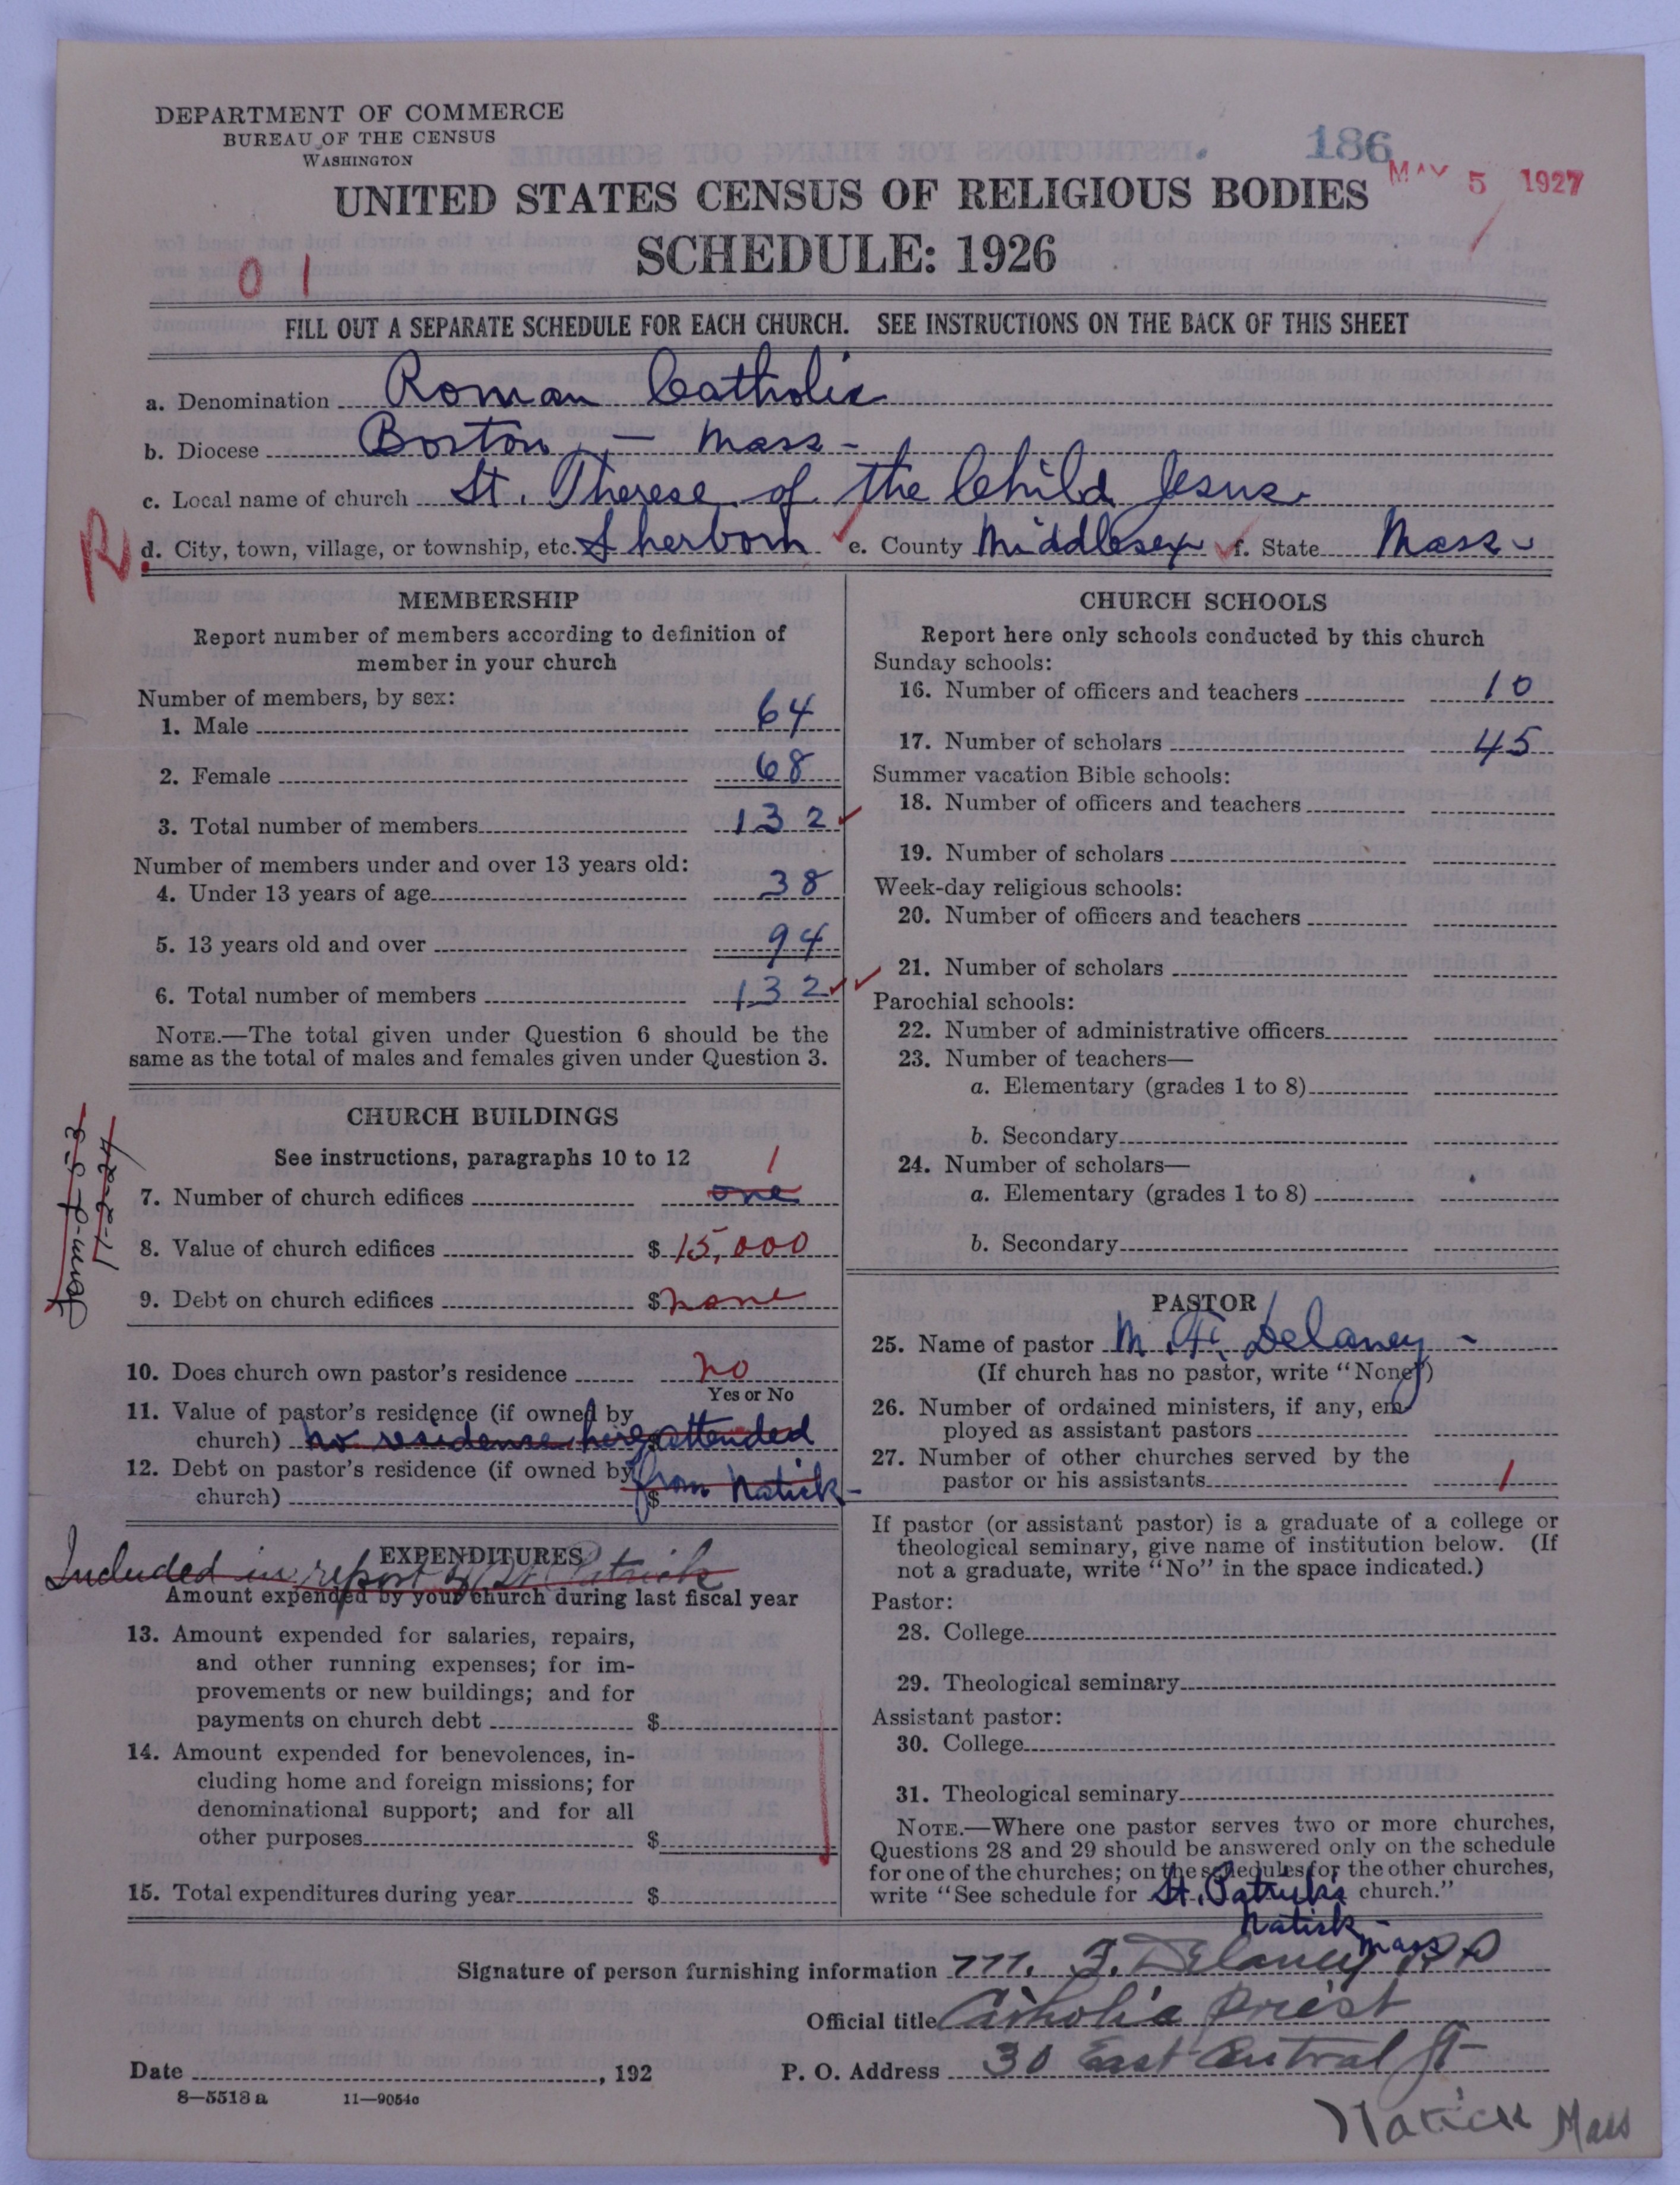 DEPARTMENT OF COMMERCE
BUREAU OF THE CENSUS
WASHINGTON
186
MAY 5 1927
UNITED STATES CENSUS OF RELIGIOUS BODIES
SCHEDULE: 1926
01
FILL OUT A SEPARATE SCHEDULE FOR EACH CHURCH. SEE INSTRUCTIONS ON THE BACK OF THIS SHEET
a. Denomination Roman Catholic
b. Diocese Boston - Mass-
c. Local name of church St. Therese of the Child Jesus.
R
d. City, town, village, or township, etc. Sherborn e. County Middlesex f. State Mass-
MEMBERSHIP
Report number of members according to definition of
member in your church
Number of members, by sex:
1. Male 64
2. Female 68
3. Total number of members 132
Number of members under and over 13 years old:
4. Under 13 years of age 38
5. 13 years old and over 94
6. Total number of members 132
NOTE.—The total given under Question 6 should be the
same as the total of males and females given under Question 3.
CHURCH BUILDINGS
See instructions, paragraphs 10 to 12
1
7. Number of church edifices one
8. Value of church edifices $ 15,000
9. Debt on church edifices $ none
10. Does church own pastor's residence no
Yes or No
11. Value of pastor's residence (if owned by
church) no residence here attended
12. Debt on pastor's residence (if owned by
church) $ from Natick-
EXPENDITURES
Included in report of St Patrick
Amount expended by your church during last fiscal year
13. Amount expended for salaries, repairs,
and other running expenses; for im-
provements or new buildings; and for
payments on church debt $
14. Amount expended for benevolences, in-
cluding home and foreign missions; for
denominational support; and for all
other purposes $
15. Total expenditures during year $
CHURCH SCHOOLS
Report here only schools conducted by this church
Sunday schools:
16. Number of officers and teachers 10
17. Number of scholars 45
Summer vacation Bible schools:
18. Number of officers and teachers
19. Number of scholars
Week-day religious schools:
20. Number of officers and teachers
21. Number of scholars
Parochial schools:
22. Number of administrative officers
23. Number of teachers—
a. Elementary (grades 1 to 8)
b. Secondary
24. Number of scholars—
a. Elementary (grades 1 to 8)
b. Secondary
PASTOR
25. Name of pastor M. F. Delaney -
(If church has no pastor, write "None")
26. Number of ordained ministers, if any, em-
ployed as assistant pastors
27. Number of other churches served by the
pastor or his assistants 1
If pastor (or assistant pastor) is a graduate of a college or
theological seminary, give name of institution below. (If
not a graduate, write "No" in the space indicated.)
Pastor:
28. College
29. Theological seminary
Assistant pastor:
30. College
31. Theological seminary
NOTE.—Where one pastor serves two or more churches,
Questions 28 and 29 should be answered only on the schedule
for one of the churches; on the schedules for the other churches,
write "See schedule for St. Patrick's church."
Natick-
Mass
Signature of person furnishing information M. F. Delaney
Official title Catholic Priest
Date , 192
P. O. Address 30 East Central St-
8-5518 a 11-9054c
Natick Mass